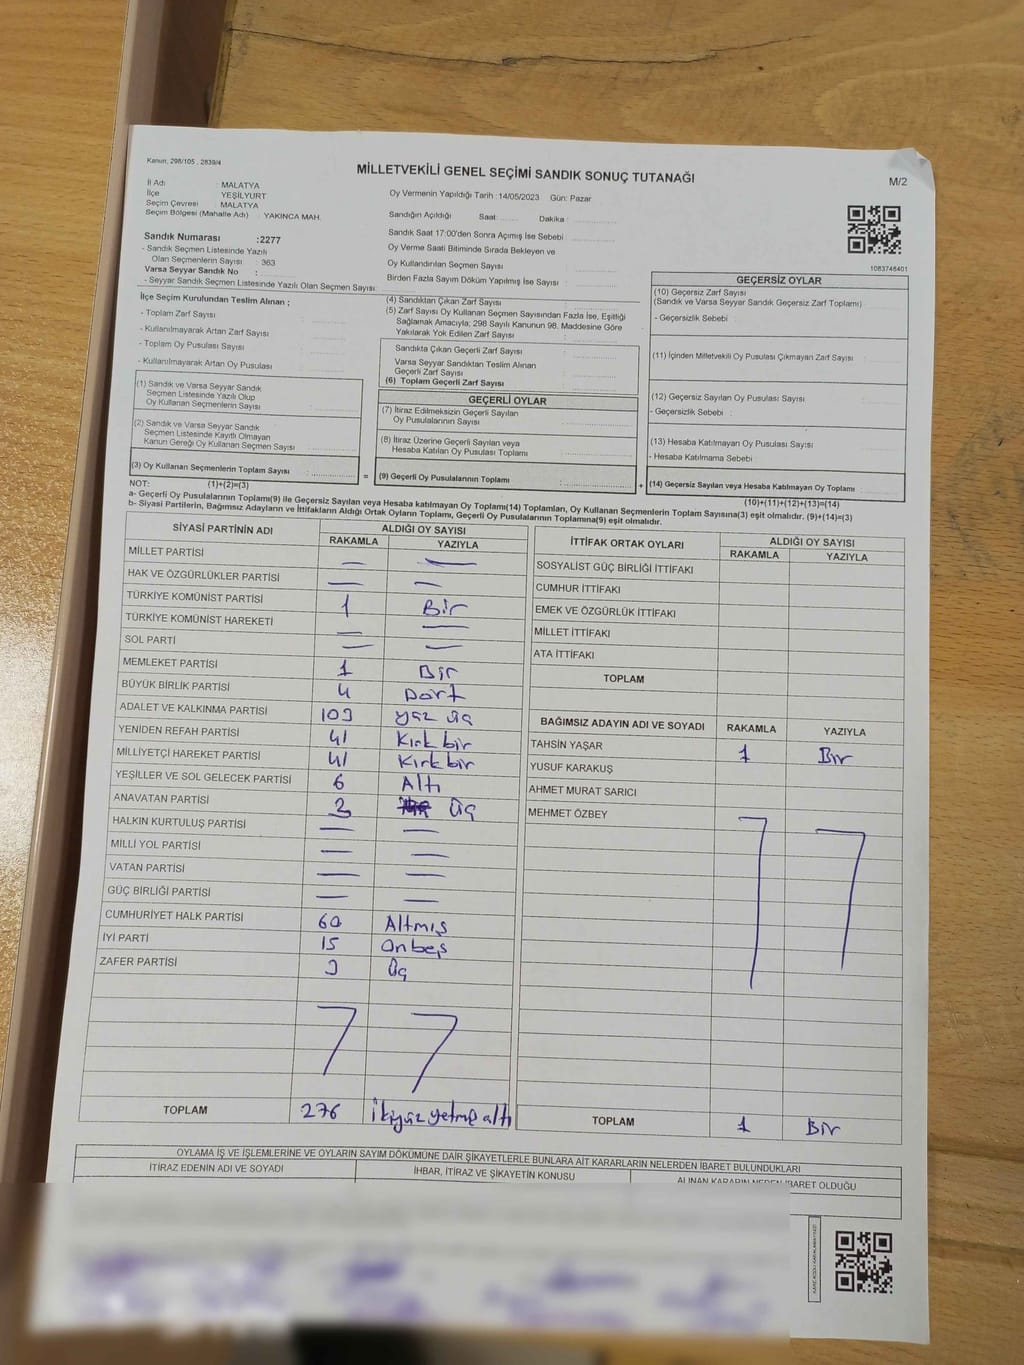 Kanun, 298/105 , 2839/4
MİLLETVEKİLİ GENEL SEÇİMİ SANDIK SONUÇ TUTANAĞI
M/2
İl Adı : MALATYA
İlçe : YEŞİLYURT
Seçim Çevresi : MALATYA
Seçim Bölgesi (Mahalle Adı) : YAKINCA MAH.
Sandık Numarası :2277
- Sandık Seçmen Listesinde Yazılı
Olan Seçmenlerin Sayısı : 363
Varsa Seyyar Sandık No :
- Seyyar Sandık Listesinde Yazılı Olan Seçmen Sayısı:
Oy Vermenin Yapıldığı Tarih :14/05/2023 Gün: Pazar
Sandığın Açıldığı Saat: Dakika :
Sandık Saat 17:00'den Sonra Açımış İse Sebebi
Oy Verme Saati Bitiminde Sırada Bekleyen ve
Oy Kullandırılan Seçmen Sayısı :
Birden Fazla Sayım Döküm Yapılmış İse Sayısı :
1083746401
İlçe Seçim Kurulundan Teslim Alınan ;
- Toplam Zarf Sayısı :
- Kullanılmayarak Artan Zarf Sayısı :
- Toplam Oy Pusulası Sayısı :
- Kullanılmayarak Artan Oy Pusulası :
(1) Sandık ve Varsa Seyyar Sandık
Seçmen Listesinde Yazılı Olup
Oy Kullanan Seçmenlerin Sayısı :
(2) Sandık ve Varsa Seyyar Sandık
Seçmen Listesinde Kayıtlı Olmayan
Kanun Gereği Oy Kullanan Seçmen Sayısı :
(3) Oy Kullanan Seçmenlerin Toplam Sayısı :
(1)+(2)=(3)
=
(4) Sandıktan Çıkan Zarf Sayısı :
(5) Zarf Sayısı Oy Kullanan Seçmen Sayısından Fazla İse, Eşitliği
Sağlamak Amacıyla; 298 Sayılı Kanunun 98. Maddesine Göre
Yakılarak Yok Edilen Zarf Sayısı :
Sandıkta Çıkan Geçerli Zarf Sayısı :
Varsa Seyyar Sandıktan Teslim Alınan
Geçerli Zarf Sayısı :
(6) Toplam Geçerli Zarf Sayısı :
GEÇERLİ OYLAR
(7) İtiraz Edilmeksizin Geçerli Sayılan
Oy Pusulalarının Sayısı :
(8) İtiraz Üzerine Geçerli Sayılan veya
Hesaba Katılan Oy Pusulası Toplamı :
(9) Geçerli Oy Pusulalarının Toplamı :
+
GEÇERSİZ OYLAR
(10) Geçersiz Zarf Sayısı :
(Sandık ve Varsa Seyyar Sandık Geçersiz Zarf Toplamı)
- Geçersizlik Sebebi :
(11) İçinden Milletvekili Oy Pusulası Çıkmayan Zarf Sayısı
(12) Geçersiz Sayılan Oy Pusulası Sayısı :
- Geçersizlik Sebebi :
(13) Hesaba Katılmayan Oy Pusulası Sayısı :
- Hesaba Katılmama Sebebi :
(14) Geçersiz Sayılan veya Hesaba Katılmayan Oy Toplamı :
(10)+(11)+(12)+(13)=(14)
NOT:
a- Geçerli Oy Pusulalarının Toplamı(9) ile Geçersiz Sayılan veya Hesaba katılmayan Oy Toplamı(14) Toplamları, Oy Kullanan Seçmenlerin Toplam Sayısına(3) eşit olmalıdır. (9)+(14)=(3)
b- Siyasi Partilerin, Bağımsız Adayların ve İttifakların Aldığı Ortak Oyların Toplamı, Geçerli Oy Pusulalarının Toplamına(9) eşit olmalıdır.
SİYASİ PARTİNİN ADI ALDIĞI OY SAYISI
RAKAMLA YAZIYLA
MİLLET PARTİSİ — —
HAK VE ÖZGÜRLÜKLER PARTİSİ — —
TÜRKİYE KOMÜNİST PARTİSİ 1 Bir
TÜRKİYE KOMÜNİST HAREKETİ — —
SOL PARTİ — —
MEMLEKET PARTİSİ 1 Bir
BÜYÜK BİRLİK PARTİSİ 4 Dört
ADALET VE KALKINMA PARTİSİ 103 yüz üç
YENİDEN REFAH PARTİSİ 41 Kırk bir
MİLLİYETÇİ HAREKET PARTİSİ 41 Kırk bir
YEŞİLLER VE SOL GELECEK PARTİSİ 6 Altı
ANAVATAN PARTİSİ 3 üç
HALKIN KURTULUŞ PARTİSİ — —
MİLLİ YOL PARTİSİ — —
VATAN PARTİSİ — —
GÜÇ BİRLİĞİ PARTİSİ — —
CUMHURİYET HALK PARTİSİ 60 Altmış
İYİ PARTİ 15 Onbeş
ZAFER PARTİSİ 3 üç
TOPLAM 276 ikiyüz yetmiş altı
İTTİFAK ORTAK OYLARI ALDIĞI OY SAYISI
RAKAMLA YAZIYLA
SOSYALİST GÜÇ BİRLİĞİ İTTİFAKI
CUMHUR İTTİFAKI
EMEK VE ÖZGÜRLÜK İTTİFAKI
MİLLET İTTİFAKI
ATA İTTİFAKI
TOPLAM
BAĞIMSIZ ADAYIN ADI VE SOYADI RAKAMLA YAZIYLA
TAHSİN YAŞAR 1 Bir
YUSUF KARAKUŞ
AHMET MURAT SARICI
MEHMET ÖZBEY
TOPLAM 1 Bir
OYLAMA İŞ VE İŞLEMLERİNE VE OYLARIN SAYIM DÖKÜMÜNE DAİR ŞİKAYETLERLE BUNLARA AİT KARARLARIN NELERDEN İBARET BULUNDUKLARI
İTİRAZ EDENİN ADI VE SOYADI İHBAR, İTİRAZ VE ŞİKAYETİN KONUSU ALINAN KARARIN NEDEN İBARET OLDUĞU